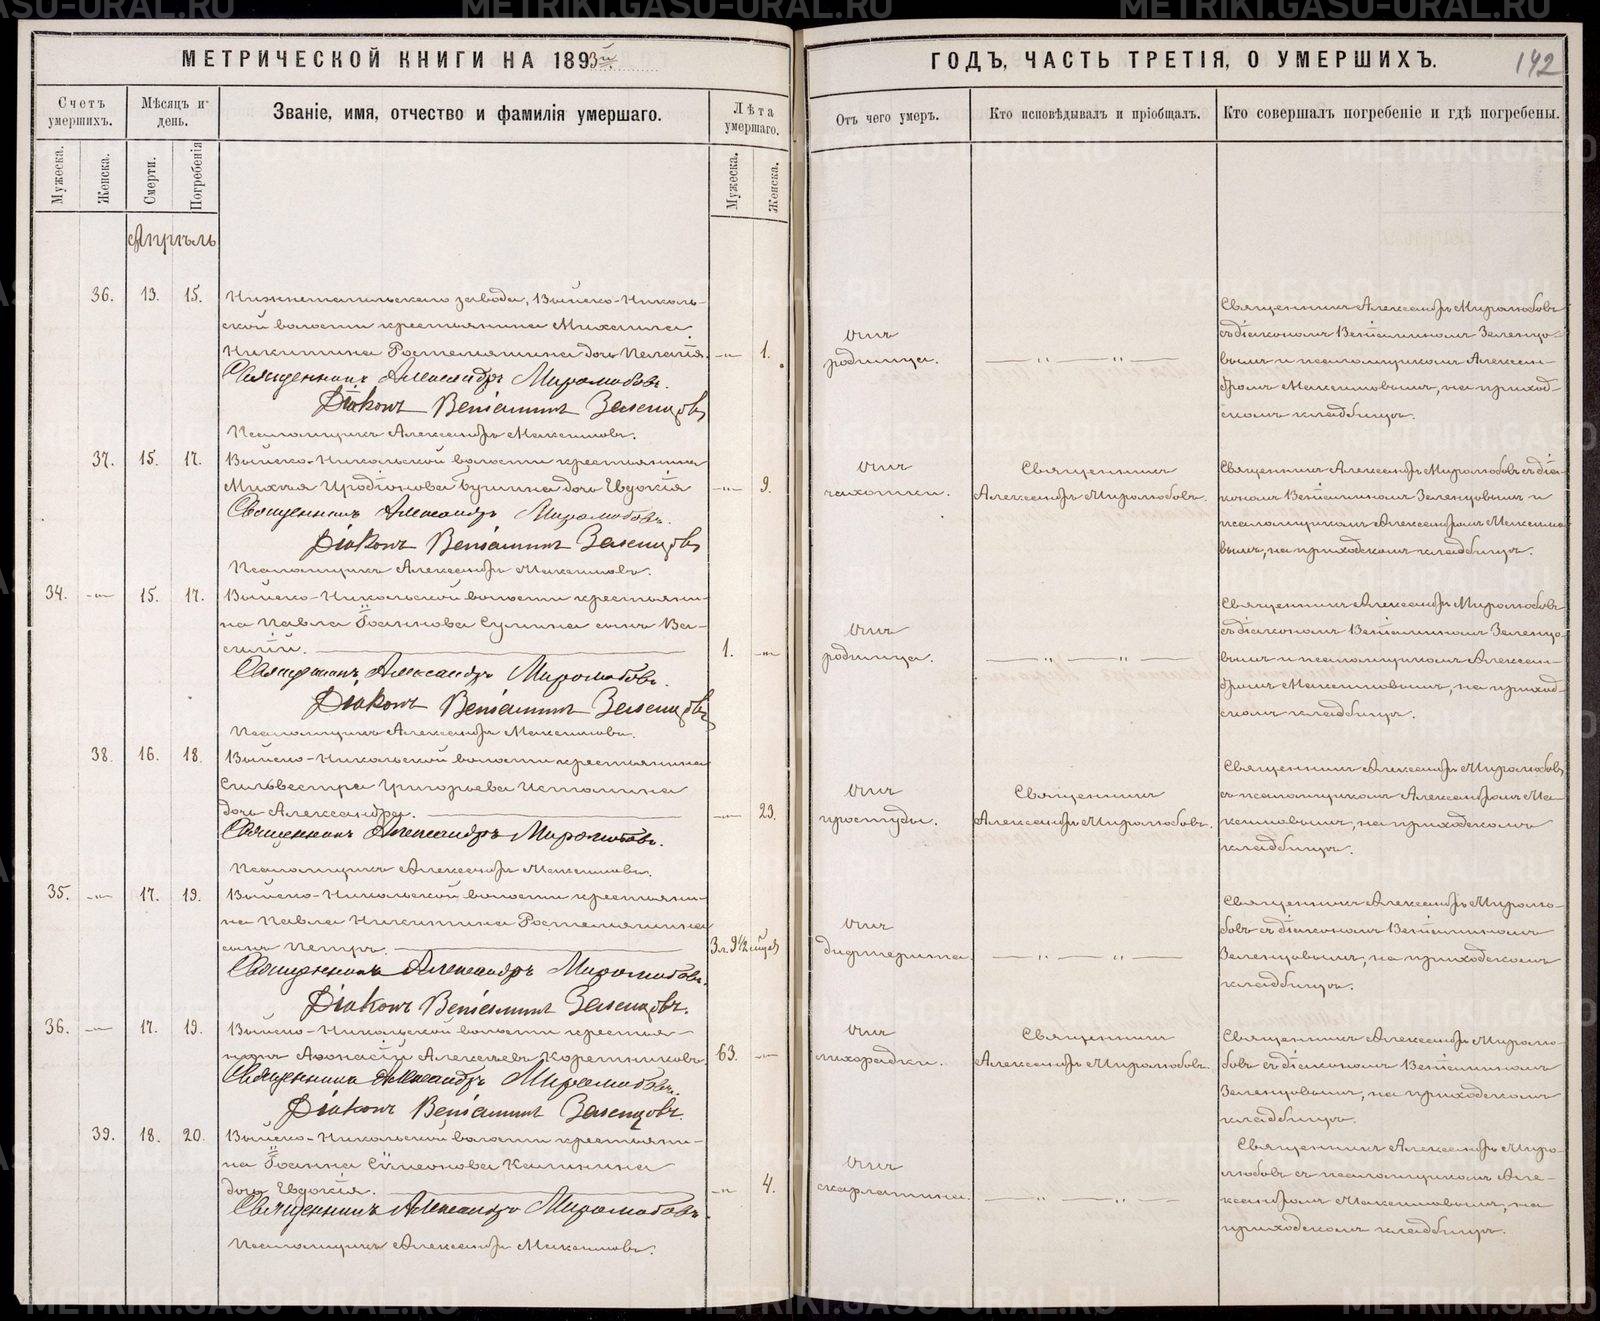 МЕТРИЧЕСКОЙ КНИГИ НА 1893й
Счетъ умершихъ.
Мѣсяцъ и день.
Званіе, имя, отчество и фамилія умершаго.
Лѣта умершаго.
Мужеска.
Женска.
Смерти.
Погребенія
Мужеска.
Женска.
Апрѣль
36. 13. 15. Нижнетагильскаго завода, Выйско-Николь-
ской волости крестьянина Михаила
Никитина дочь Пелагія. -"- 1.
Священникъ Александръ Миролюбовъ.
Діаконъ Веніаминъ Зеленцовъ
Псаломщикъ Александръ Максимовъ.
37. 15. 17. Выйско-Никольской волости крестьянина
Михея Иродіонова дочь Евдокія -"- 9.
Священникъ Александръ Миролюбовъ.
Діаконъ Веніаминъ Зеленцовъ
Псаломщикъ Александръ Максимовъ.
34. -"- 15. 17. Выйско-Никольской волости крестьяни-
на Павла Іоаннова Сулина сынъ Ва-
силій. 1. -"-
Священникъ Александръ Миролюбовъ.
Діаконъ Веніаминъ Зеленцовъ
Псаломщикъ Александръ Максимовъ.
38. 16. 18. Выйско-Никольской волости крестьянина
Сильвестра Григорьева Истомина
дочь Александра. -"- 23.
Священникъ Александръ Миролюбовъ.
Псаломщикъ Александръ Максимовъ.
35. -"- 17. 19. Выйско-Никольской волости крестьяни-
на Павла Никитина
сынъ Петръ. 3 л. 9 1/2
Священникъ Александръ Миролюбовъ.
Діаконъ Веніаминъ Зеленцовъ.
36. -"- 17. 19. Выйско-Никольской волости крестья-
нинъ Афонасій Алексѣевъ Коретниковъ. 63. -"-
Священникъ Александръ Миролюбовъ.
Діаконъ Веніаминъ Зеленцовъ.
39. 18. 20. Выйско-Никольской волости крестьяни-
на Іоанна Сѵмеонова Калинина
дочь Евдокія. -"- 4.
Священникъ Александръ Миролюбовъ.
Псаломщикъ Александръ Максимовъ.
ГОДЪ, ЧАСТЬ ТРЕТІЯ, О УМЕРШИХЪ.
142
Отъ чего умеръ.
Кто исповѣдывалъ и пріобщалъ.
Кто совершалъ погребеніе и гдѣ погребены.
отъ
родимца.
— " — " —
Священникъ Александръ Миролюбовъ
съ діакономъ Веніаминомъ Зеленцо-
вымъ и псаломщикомъ Алексан-
дромъ Максимовымъ, на приход-
скомъ кладбищѣ.
отъ
чахотки.
Священникъ
Александръ Миролюбовъ.
Священникъ Александръ Миролюбовъ съ діа-
кономъ Веніаминомъ Зеленцовымъ и
псаломщикомъ Александромъ Максимо-
вымъ, на приходскомъ кладбищѣ.
отъ
родимца.
— " — " —
Священникъ Александръ Миролюбовъ
съ діакономъ Веніаминомъ Зеленцо-
вымъ и псаломщикомъ Алексан-
дромъ Максимовымъ, на приход-
скомъ кладбищѣ.
отъ
простуды.
Священникъ
Александръ Миролюбовъ.
Священникъ Александръ Миролюбовъ
съ псаломщикомъ Александромъ Ма-
ксимовымъ, на приходскомъ
кладбищѣ.
отъ
дифтерита.
— " — " —
Священникъ Александръ Миролю-
бовъ съ діакономъ Веніаминомъ
Зеленцовымъ, на приходскомъ
кладбищѣ.
отъ
лихорадки.
Священникъ
Александръ Миролюбовъ.
Священникъ Александръ Миролю-
бовъ съ діакономъ Веніаминомъ
Зеленцовымъ, на приходскомъ
кладбищѣ.
отъ
скарлатина.
— " — " —
Священникъ Александръ Миро-
любовъ съ псаломщикомъ Але-
ксандромъ Максимовымъ, на
приходскомъ кладбищѣ.
METRIKI.GASO-URAL.RU